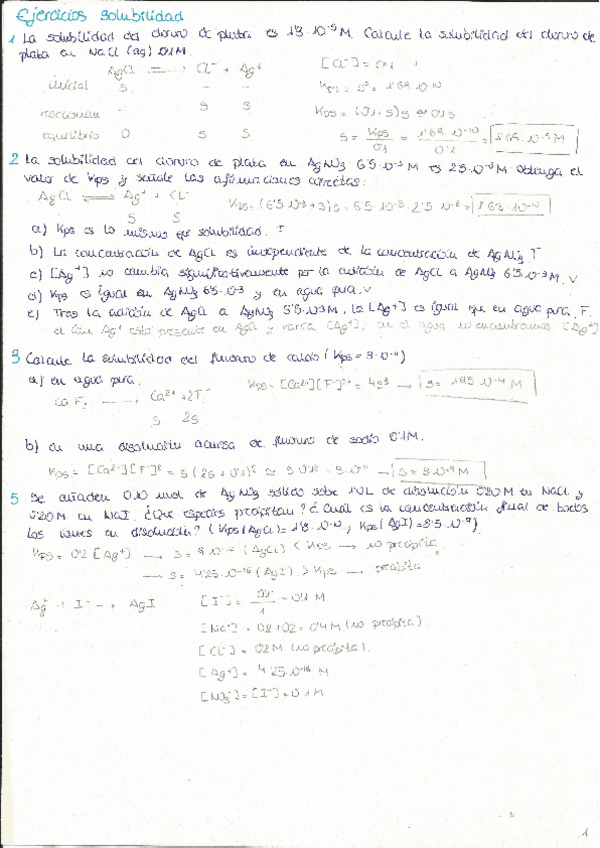 Ejercicios solubilidad
1 La solubilidad del cloruro de plata es 1'3·10⁻⁵M. Calcule la solubilidad del cloruro de
plata en NaCl (aq) 0'1M.
AgCl ⇌ Cl⁻ + Ag⁺ [Cl⁻] = 0'1
inicial S - - Kps = S² = 1'69·10⁻¹⁰
reaccionan - S S Kps = (0'1+S)S ≅ 0'1S
equilibrio 0 S S S = Kps/0'1 = 1'69·10⁻¹⁰/0'1 = 1'69·10⁻⁹M
2 La solubilidad del cloruro de plata en AgNO₃ 6'5·10⁻³M es 2'5·10⁻⁸M obtenga el
valor de Kps y señale las afirmaciones correctas:
AgCl ⇌ Ag⁺ + Cl⁻ Kps = (6'5·10⁻³+S)S = 6'5·10⁻³·2'5·10⁻⁸ = 1'63·10⁻¹⁰
S S
a) Kps es lo mismo que solubilidad.
b) La concentración de AgCl es independiente de la concentración de AgNO₃
c) [Ag⁺] no cambia significativamente por la adición de AgCl a AgNO₃ 6'5·10⁻³M. V
d) Kps es igual en AgNO₃ 6'5·10⁻³ y en agua pura. V
e) Tras la adición de AgCl a AgNO₃ 5'5·10⁻³M, la [Ag⁺] es igual que en agua pura. F.
el ion Ag⁺ está presente en AgCl y varía [Ag⁺], en el agua no encontramos [Ag⁺]
3 Calcule la solubilidad del fluoruro de calcio (Kps = 3·10⁻¹¹)
a) en agua pura. Kps = [Ca²⁺][F⁻]² = 4S³ → S = 1'95·10⁻⁴ M
CaF₂ → Ca²⁺ + 2F⁻
S 2S
b) en una disolución acuosa de fluoruro de sodio 0'1M.
Kps = [Ca²⁺][F⁻]² = S(2S+0'1)² ≅ S·0'1² = 3·10⁻¹¹ → S = 3·10⁻⁹M
5 Se añaden 0'10 mol de AgNO₃ sólido sobre 1'0L de disolución 0'20M en NaCl y
0'20M en NaI. ¿Que especies precipitan? ¿Cuál es la concentración final de todos
los iones en disolución? (Kps(AgCl) = 1'8·10⁻¹⁰; Kps(AgI) = 8'5·10⁻¹⁷)
Kps = 0'2 [Ag⁺] → S = 9·10⁻¹⁰ (AgCl) < Kps → no precipita
→ S = 4'25·10⁻¹⁶ (AgI) > Kps → precipita
Ag⁺ + I⁻ → AgI [I⁻] = 0'1/1 = 0'1 M
[Na⁺] = 0'2+0'2 = 0'4 M (no precipita)
[Cl⁻] = 0'2M (no precipita).
[Ag⁺] = 4'25·10⁻¹⁶ M
[NO₃⁻] = [I⁻] = 0'1M
1